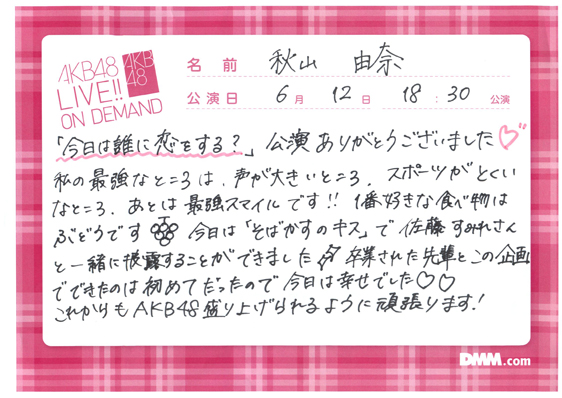 AKB48
LIVE!!
ON DEMAND
AKB
48
名前 秋山 由奈
公演日 6月 12日 18:30 公演
「今日は誰に恋をする?」公演ありがとうございました♡
私の最強なところは、声が大きいところ、スポーツがとくい
なところ、あとは最強スマイルです!! 1番好きな食べ物は
ぶどうです 今日は「そばかすのキス」で佐藤すみれさん
と一緒に披露することができました 卒業された先輩とこの企画
でできたのは初めてだったので今日は幸せでした♡♡
これからもAKB48盛り上げられるように頑張ります!
DMM.com